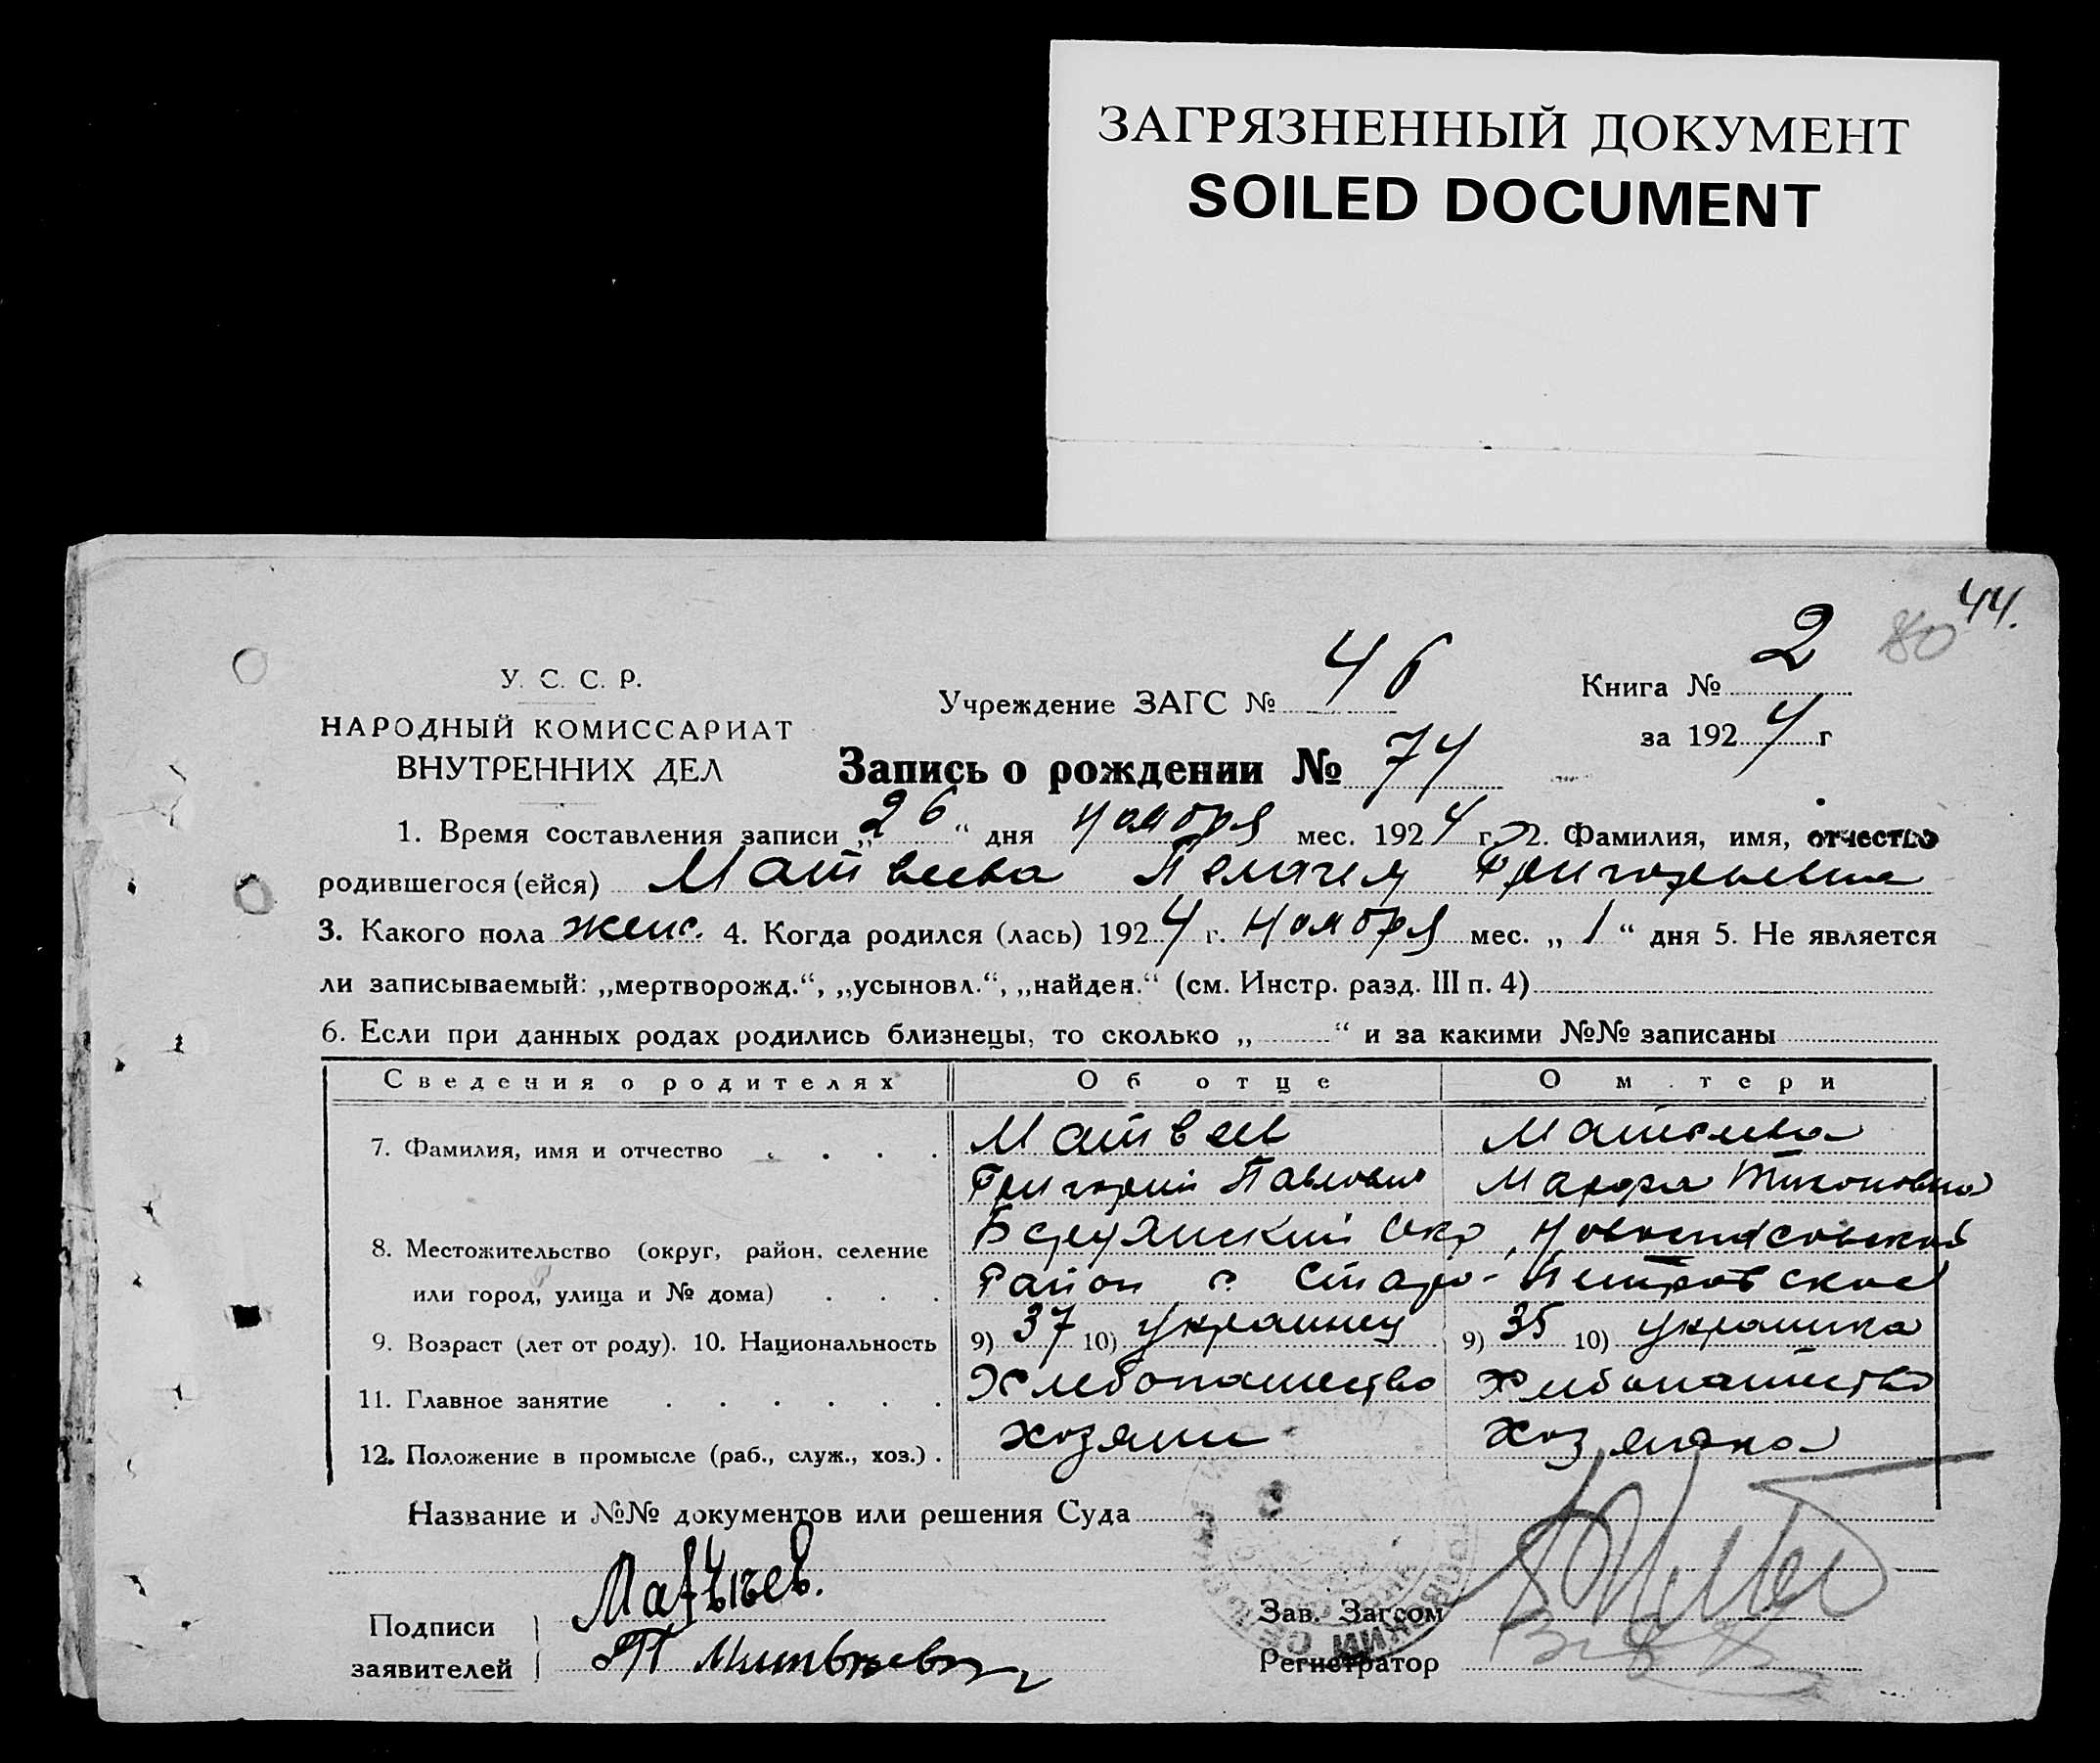 ЗАГРЯЗНЕННЫЙ ДОКУМЕНТ
SOILED DOCUMENT
44.
80
У. С. С. Р.
НАРОДНЫЙ КОМИССАРИАТ
ВНУТРЕННИХ ДЕЛ
Учреждение ЗАГС № 46
Книга № 2
за 1924 г
Запись о рождении № 74
1. Время составления записи „26“ дня ноября мес. 1924 г. 2. Фамилия, имя, отчество
родившегося (ейся) Матвеева Пелагея Григорьевна
3. Какого пола женс. 4. Когда родился (лась) 1924 г. ноября мес. „1“ дня 5. Не является
ли записываемый: „мертворожд.“, „усыновл.“, „найден.“ (см. Инстр. разд. III п. 4)
6. Если при данных родах родились близнецы, то сколько „ “ и за какими №№ записаны
Сведения о родителях Об отце О м тери
7. Фамилия, имя и отчество Матвеев Матвеева
Григорий Павлович Марфа Тихоновна
8. Местожительство (округ, район, селение Бердянский Окр, Новоспасовский
или город, улица и № дома) Район с. Старо-Петровское
9. Возраст (лет от роду). 10. Национальность 9) 37 10) украинец 9) 35 10) украинка
11. Главное занятие Хлебопашество Хлебопашество
12. Положение в промысле (раб., служ., хоз.) хозяин хозяйка
Название и №№ документов или решения Суда
Подписи
заявителей
Зав. Загсом
Регистратор